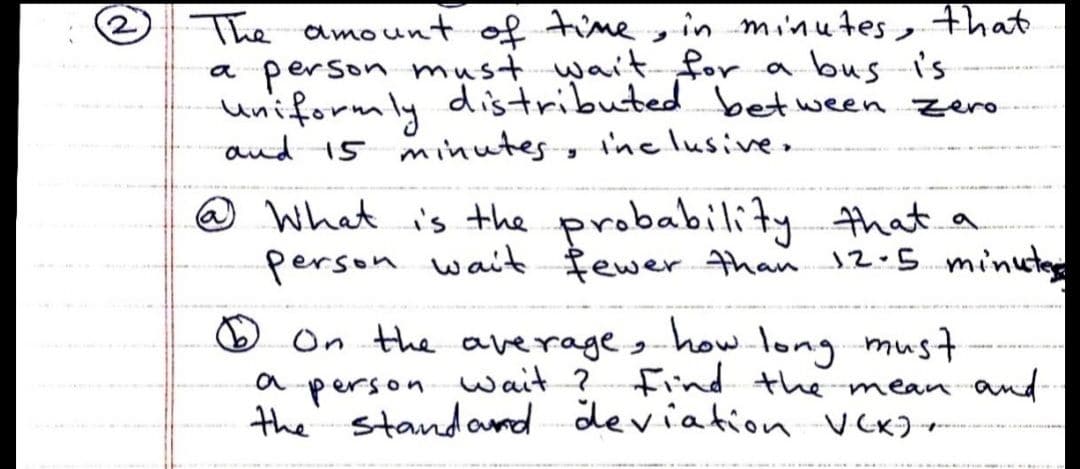 ② The amount of time, in minutes, that
a person must wait for a bus is
uniformly distributed between zero
and 15 minutes, inclusive.
ⓐ What is the probability that a
person wait fewer than 12.5 minutes
ⓑ On the average, how long must
a person wait? Find the mean and
the standard deviation V(X).